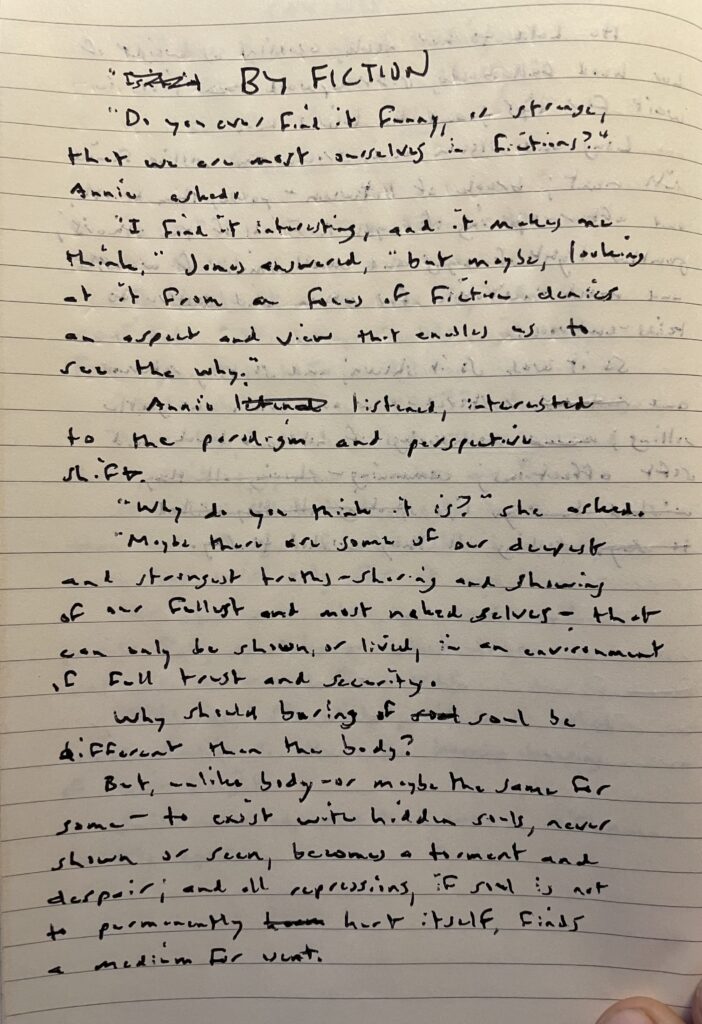 " BY FICTION
"Do you ever find it funny, or strange,
that we are most ourselves in fictions?"
Annie asked.
"I find it interesting, and it makes me
think," Jones answered, "but maybe, looking
at it from a focus of fiction denies
an aspect and view that enables us to
see the why."
Annie listened, interested
to the paradigm and perspective
shift.
"Why do you think it is?" she asked.
"Maybe there are some of our deepest
and strongest truths-sharing and showing
of our fullest and most naked selves- that
can only be shown, or lived, in an environment
of full trust and security.
Why should baring of soul be
different than the body?
But, unlike body-or maybe the same for
some- to exist with hidden souls, never
shown or seen, becomes a torment and
despair; and all repressions, if soul is not
to permanently hurt itself, finds
a medium for vent.